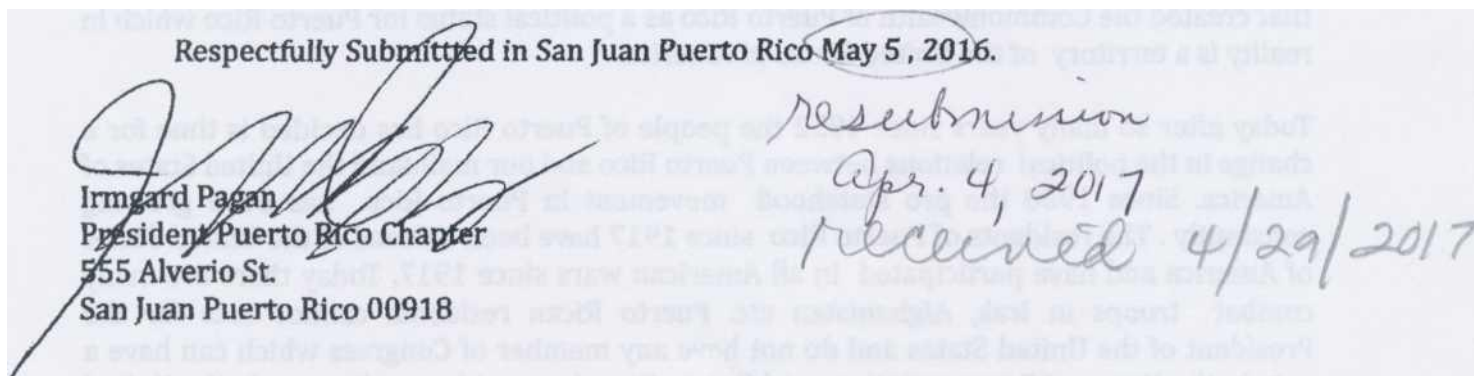 Respectfully Submitted in San Juan Puerto Rico May 5, 2016.
resubmission
Apr. 4, 2017
received 4/29/2017
Irmgard Pagan
President Puerto Rico Chapter
555 Alverio St.
San Juan Puerto Rico 00918